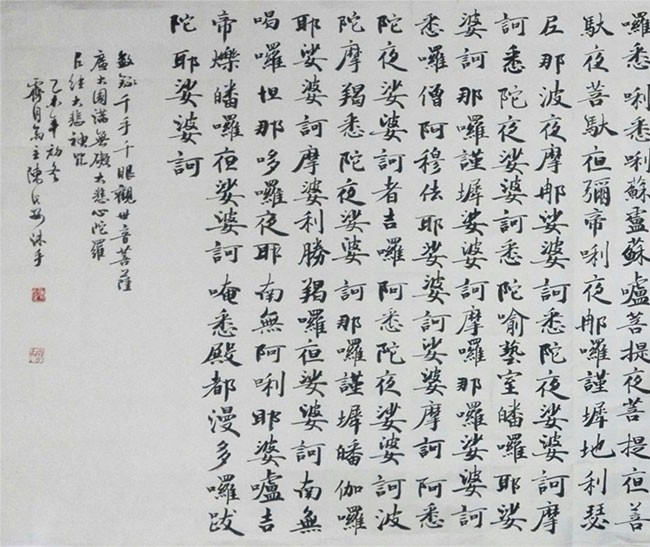 囉悉唎悉唎蘇盧蘇嚧菩提夜菩提夜菩
馱夜菩馱夜彌帝唎夜那囉謹墀地利瑟
尼那波夜摩那娑婆訶悉陀夜娑婆訶摩
訶悉陀夜娑婆訶悉陀喻藝室皤囉耶娑
婆訶那囉謹墀娑婆訶摩囉那囉娑婆訶
悉囉僧阿穆佉耶娑婆訶娑婆摩訶阿悉
陀夜娑婆訶者吉囉阿悉陀夜娑婆訶波
陀摩羯悉陀夜娑婆訶那囉謹墀皤伽囉
耶娑婆訶摩婆利勝羯囉夜娑婆訶南無
喝囉怛那哆囉夜耶南無阿唎耶婆嚧吉
帝爍皤囉夜娑婆訶唵悉殿都漫多囉跋
陀耶娑婆訶
敬錄千手千眼觀世音菩薩
廣大圓滿無礙大悲心陀羅
尼經大悲神咒
乙未年初冬
霽月齋主陳沐手